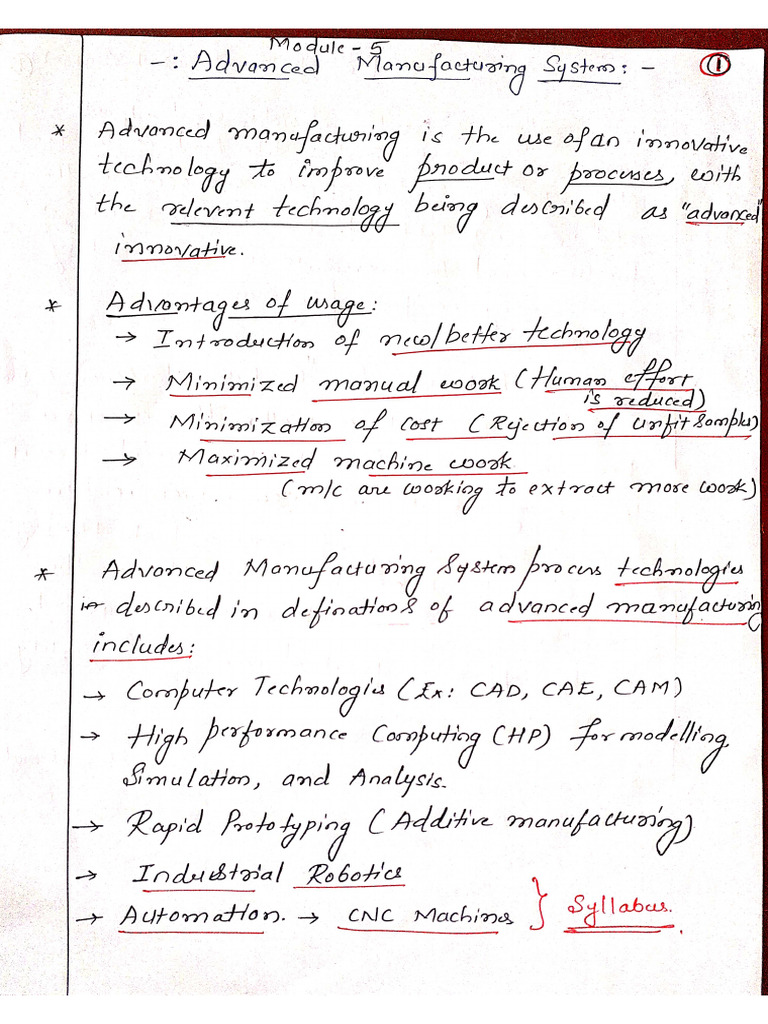 Module - 5
-: Advanced Manufacturing System: - ①
* Advanced manufacturing is the use of an innovative
technology to improve product or processes, with
the relevent technology being described as "advanced"
innovative.
* Advantages of usage:
→ Introduction of new/better technology
→ Minimized manual work (Human effort
is reduced)
→ Minimization of cost (Rejection of unfit samples)
→ Maximized machine work
(m/c are working to extract more work)
* Advanced Manufacturing System process technologies
described in definations of advanced manufacturing
includes:
→ Computer Technologies (Ex: CAD, CAE, CAM)
→ High performance Computing (HP) for modelling,
Simulation, and Analysis.
→ Rapid Prototyping (Additive manufacturing)
→ Industrial Robotics
→ Automation. → CNC Machines } Syllabus.